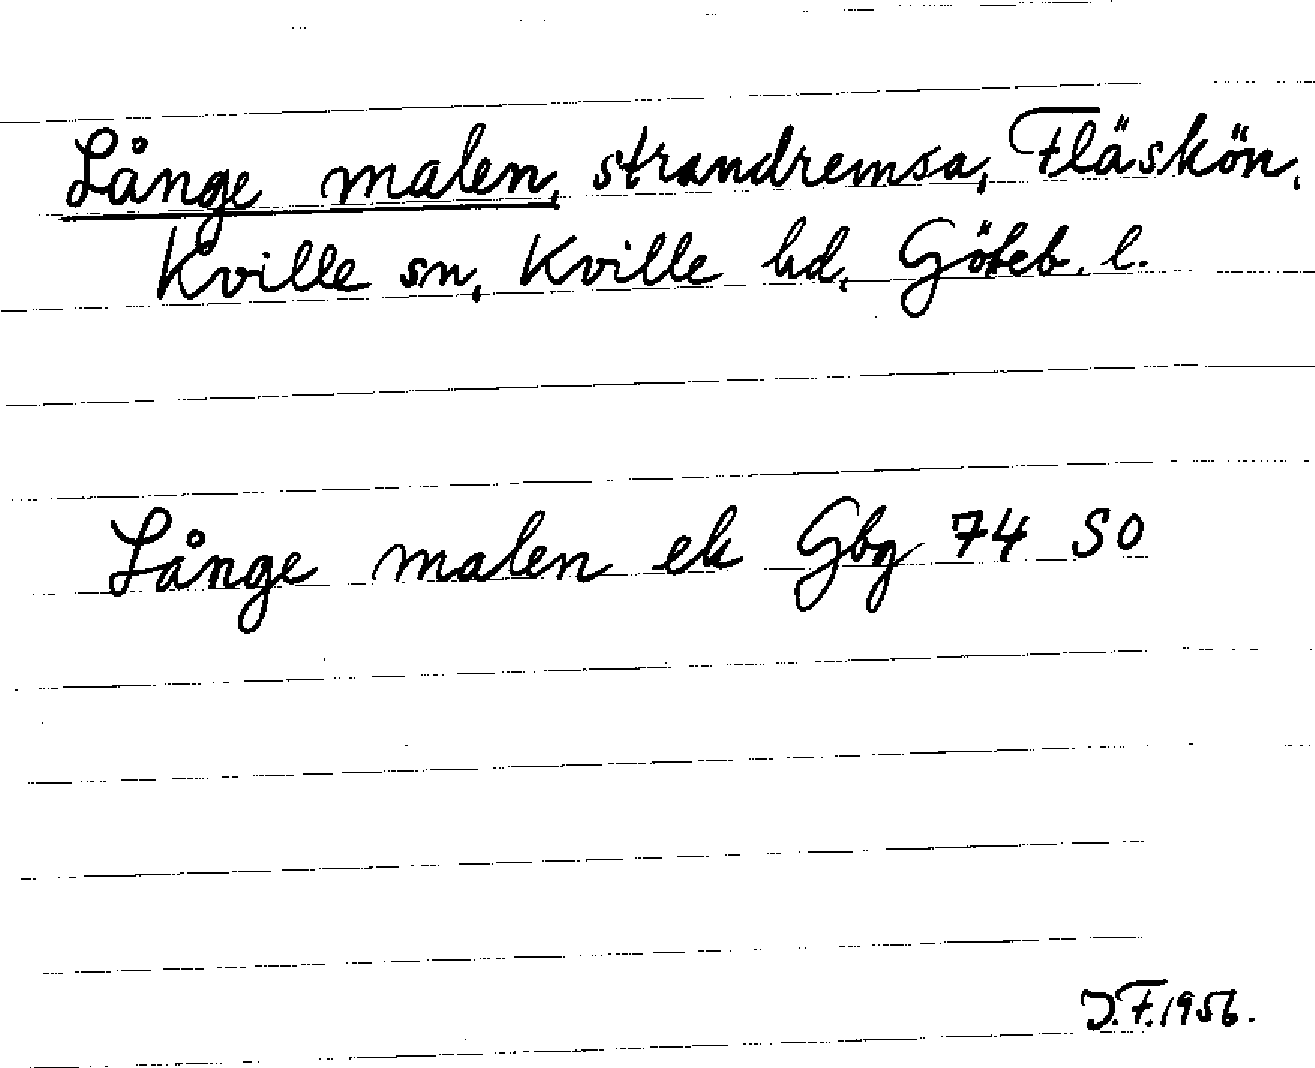 Långe malen, strandremsa, Fläskön,
Kville sn, Kville hd, Göteb. l.
Långe malen ek Gbg 74 SO
J.F. 1956.